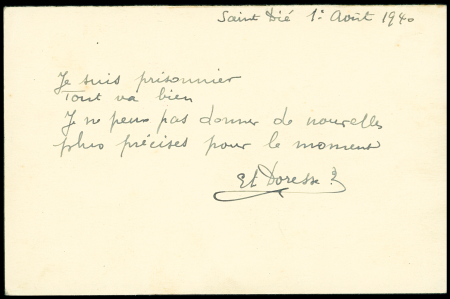 Saint Dié 1er Août 1940
Je suis prisonnier
Tout va bien
Je ne peux pas donner de nouvelles
plus précises pour le moment
Et Doresse